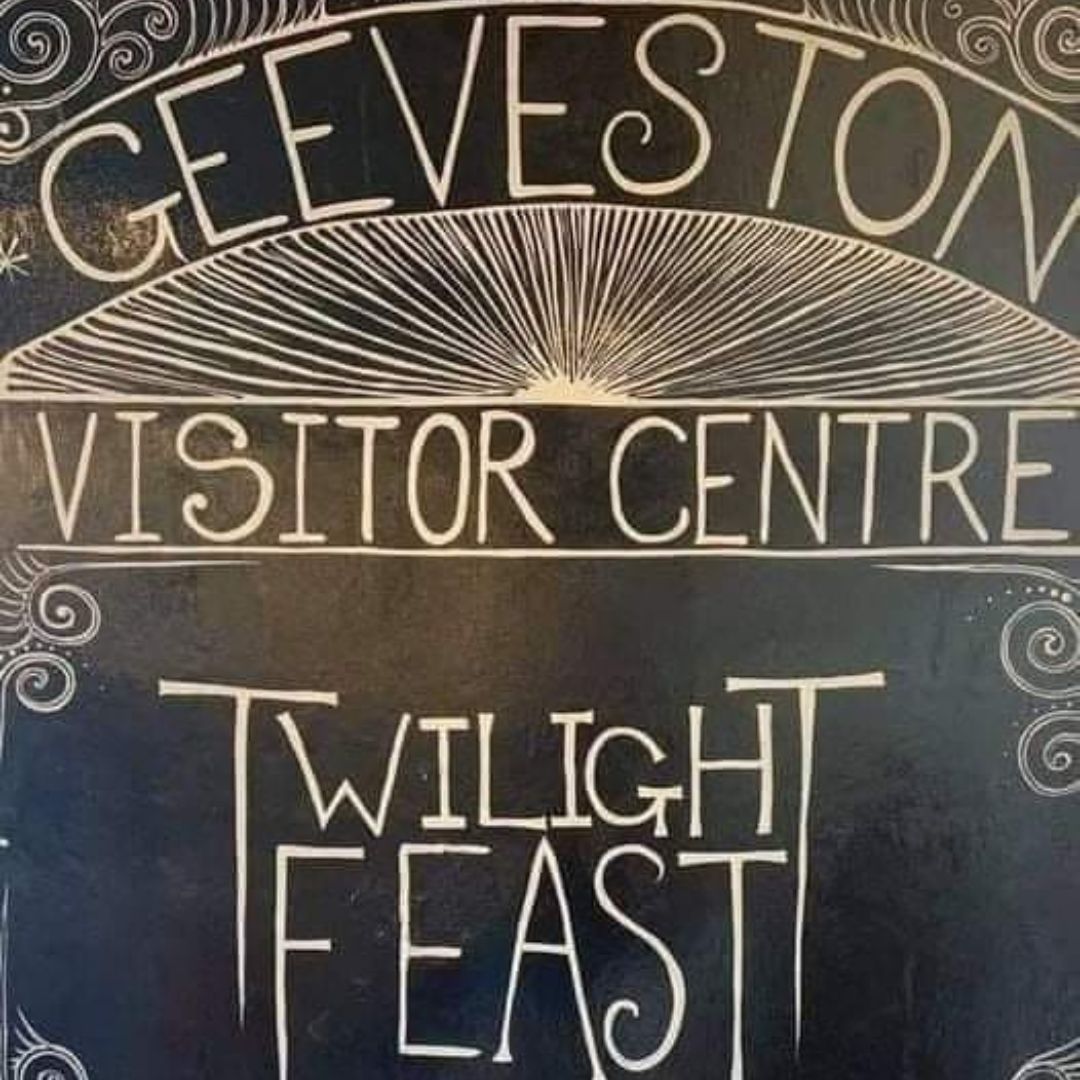 GEEVESTON
VISITOR CENTRE
TWILIGHT
FEAST